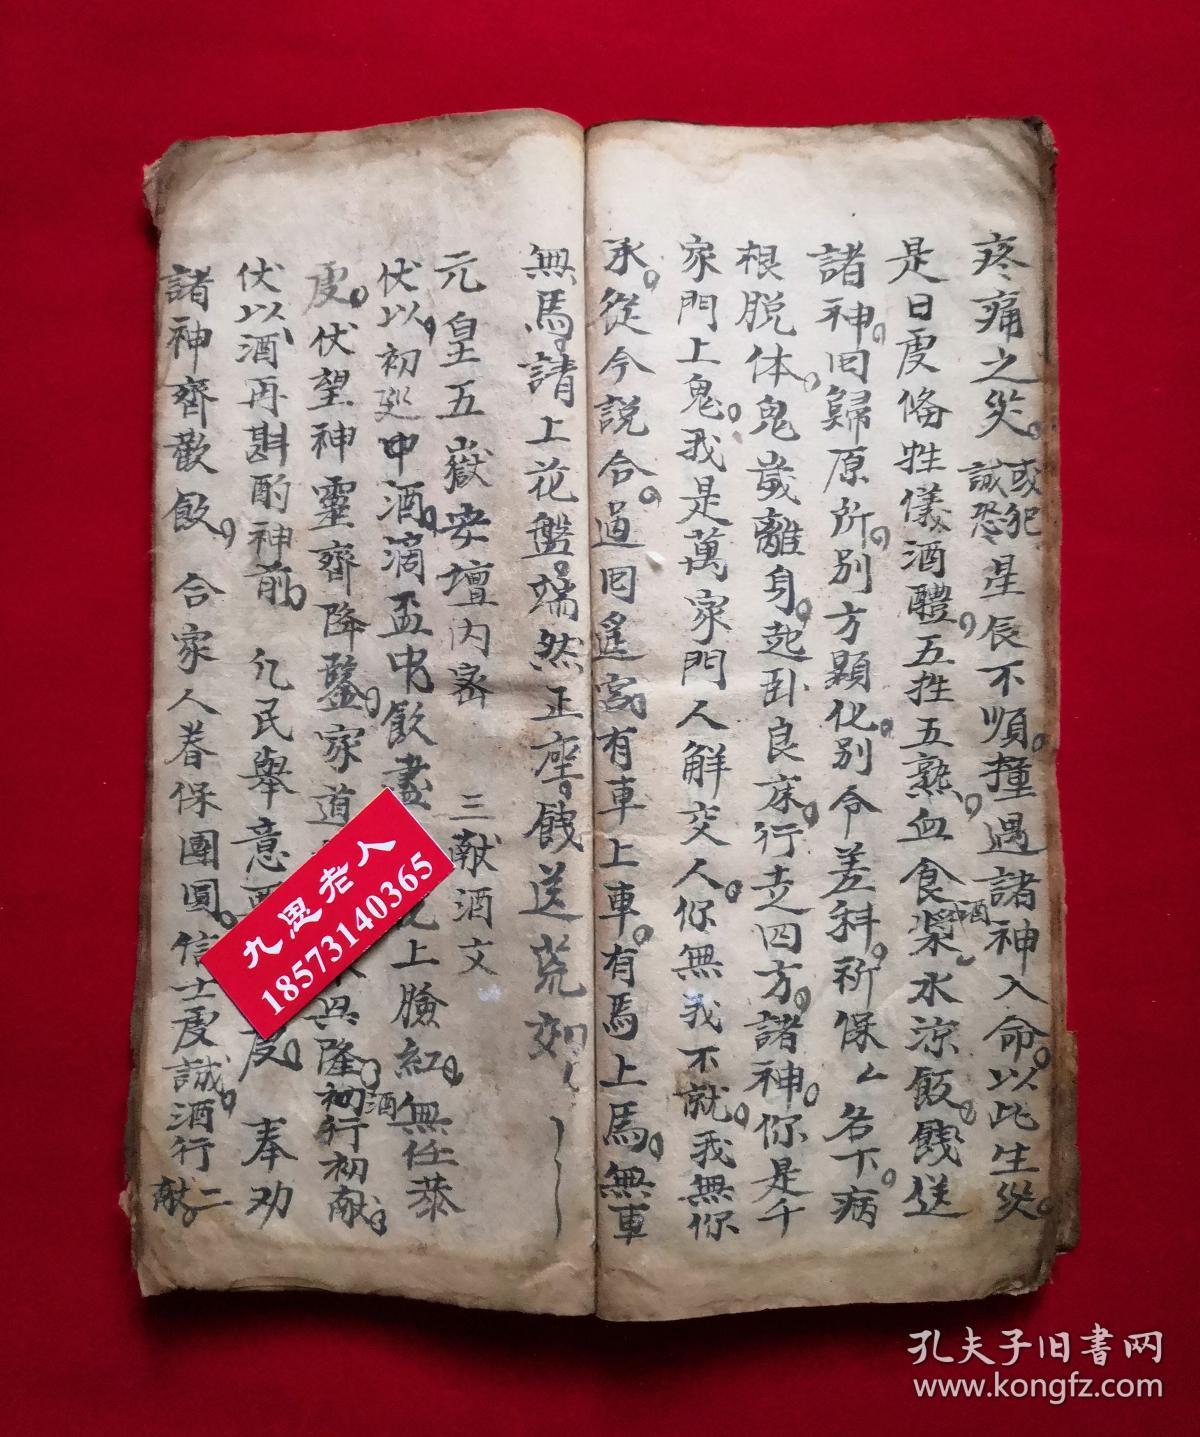 疼痛之災。或犯誠恐星辰不順。撞遇諸神入命。以此生災。
是日虔俻牲儀酒醴。五牲五熟、血食漿酒水涼飯。餞送
諸神。囬歸原所。別方顯化。別令差科。祈保厶名下。病
根脱体。鬼嵗離身。起卧良床。行走四方。諸神。你是千
家門上鬼。我是萬家門人解交人。你無我不就。我無你
承。從今説合。過囬遙宮有車上車。有馬上馬。無車
無馬。請上花盤。端然正座。餞送荒郊
元皇五嶽安壇内宻 三献酒文
伏以。初巡中酒。滴盃中飲盡 上臉紅。無任恭
虔。伏望神靈齊降鑒。家道 興隆。初酒行初献。
伏以酒再斟酌神前。凢民舉意 虔。奉劝
諸神齊歡飲。合家人眷保團圓。信士虔誠。酒行二献。
九思老人
18573140365
孔夫子旧书网
www.kongfz.com